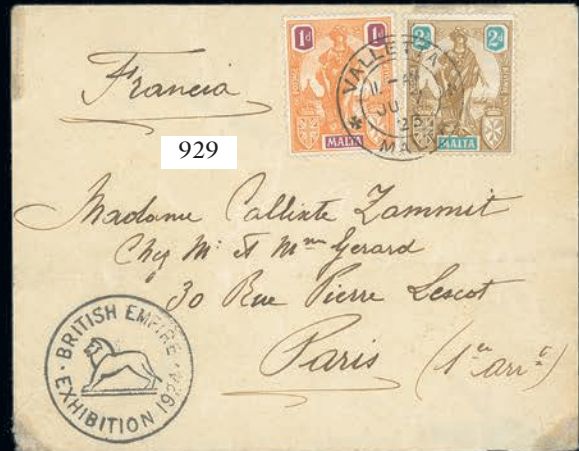 1d 1d
MALTA
2d 2d
MALTA
VALLETTA
MALTA
Francia
929
Madame Callixte Zammit
Chez Mr et Mme Gerard
30 Rue Pierre Lescot
Paris (1er arrt)
BRITISH EMPIRE
EXHIBITION 1924